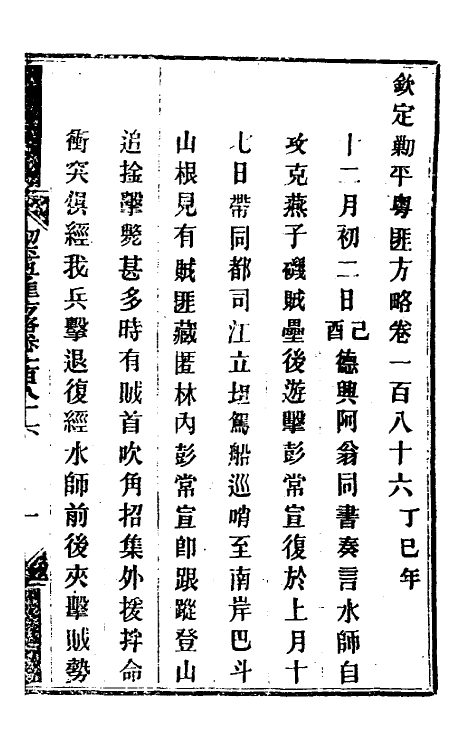 欽定勦平粵匪方略卷一百八十六 丁巳年
十二月初二日己酉德興阿翁同書奏言水師自
攻克燕子磯賊壘後遊擊彭常宣復於上月十
七日帶同都司江立坦駕船巡哨至南岸巴斗
山根見有賊匪藏匿林內彭常宣卽跟蹤登山
追搶擊斃甚多時有賊首吹角招集外援拌命
衝突俱經我兵擊退復經水師前後夾擊賊勢